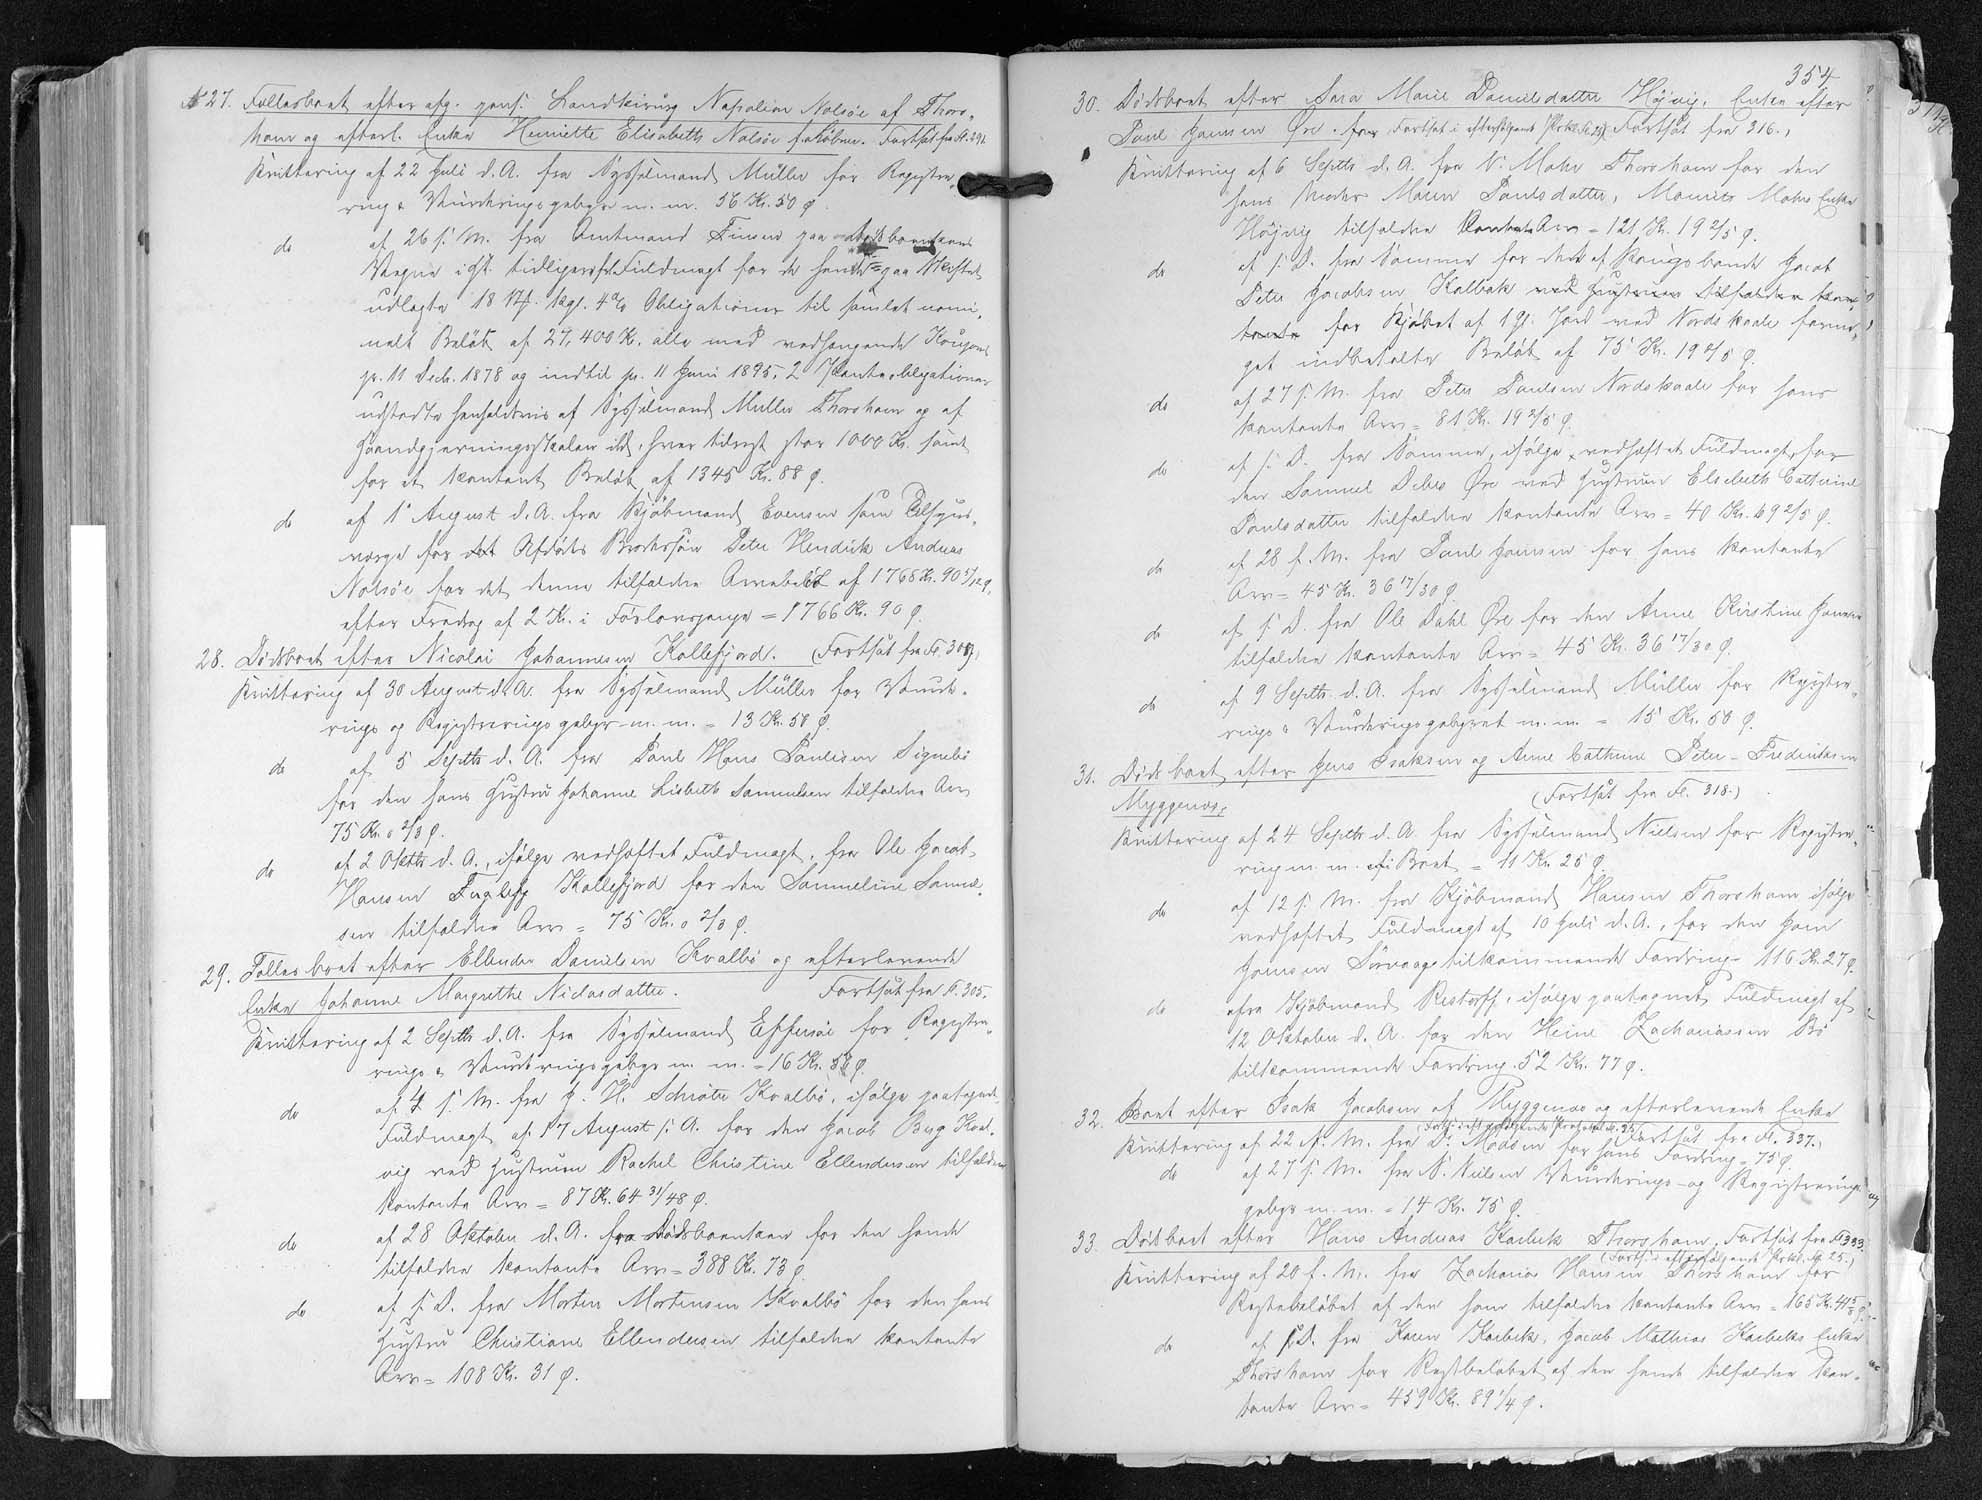 № 27. Fællesboet efter afg. pens. Landkirurg Napoleon Nolsöe af Thors-
havn og efterl. Enke Henriette Elisabeth Nolsöe f. Löbner. Fortsat fra Fl. 291.
Kvittering af 22 Juli d. A. fra Sysselmand Müller for Registre-
rings & Vurderingsgebyr m. m. 56 Kr. 50 Ø.
do af 26 s. M. fra Amtmand Finsen paa
Vegne ifl. tidligere Fuldmagt for de hende paa Skiftet
udlagte 18 Kgl. 4% Obligationer til samlet nomi-
nelt Beløb af 27,400 Kr. alle med vedhængende Kouponer
pr. 11 Decb. 1878 og indtil pr. 11 Juni 1895, 2 Panteobligationer
udstedte henholdsvis af Sysselmand Müller Thorshavn og af
Haandgjerningsskolen ibd., hver tilsyst stor 1000 Kr. samt
for et kontant Beløb af 1345 Kr. 88 Ø.
do af 1 August d. A. fra Kjøbmand Evensen som Tilsyns-
værge for Afdødes Brodersøn Peter Hendrik Andreas
Nolsöe for det denne tilfaldne Arvebeløb af 1768 Kr. 90 5/12 Ø.
efter Fradrag af 2 Kr. i Forlovspenge = 1766 Kr. 90 Ø.
28. Dødsboet efter Nicolai Johannesen Kollefjord. (Fortsat fra Fl. 309.)
Kvittering af 30 August d. A. fra Sysselmand Müller for Vurde-
rings og Registreringsgebyr m. m. = 13 Kr. 50 Ø.
do af 5 Septb d. A. fra Poul Hans Poulsen Signebö
for den hans Hustru Johanne Lisbeth Samuelsen tilfaldne Arv
75 Kr. 0 2/3 Ø.
do af 2 Oktb d. A., ifølge vedhæftet Fuldmagt, fra Ole Jacob
Hansen Kollefjord for den Sammeline Samuel-
sen tilfaldne Arv = 75 Kr. 0 2/3 Ø.
29. Fælles boet efter Ellender Danielsen Kvalbö og efterlevende
Enke Johanne Margrethe Niclasdatter. Fortsat fra Fl. 305.
Kvittering af 2 Septb d. A. fra Sysselmand Effersöe for Registre-
rings & Vurderingsgebyr m. m. = 16 Kr. 50 Ø.
do af 4 s. M. fra J. H. Schröter Kvalbö, ifølge paategnet
Fuldmagt af 17 August s. A. for den Jacob Berg Hval-
vig ved Hustruen Rachel Christine Ellendersen tilfaldne
kontante Arv = 87 Kr. 64 31/48 Ø.
do af 28 Oktober d. A. fra Dødsboenken for den hende
tilfaldne kontante Arv = 388 Kr. 73 Ø.
do af s. D. fra Morten Mortensen Kvalbö for den hans
Hustru Christiane Ellendersen tilfaldne kontante
Arv = 108 Kr. 31 Ø.
354
30. Dødsboet efter Sara Marie Danielsdatter Höjvig, Enke efter
Poul Joensen Øre. Fortsat i efterfølgende Prtkl. Fl. 25) Fortsat fra 316.
Kvittering af 6 Septb d. A. fra N. Mohr Thorshavn for den
hans Moder Maren Poulsdatter, Mourits Mohrs Enke
Höjvig tilfaldne kontante Arv = 121 Kr. 19 2/5 Ø.
do af s. D. fra Samme for det af Kongsbonde Jacob
Peter Jacobsen Kalbak ved Hustruen tilfaldne kon-
tante for Kjöbet af 1 Gl. Jord ved Nordskaale forme-
get indbetalte Beløb af 75 Kr. 19 2/5 Ø.
do af 27 s. M. fra Peter Poulsen Nordskaale for hans
kontante Arv = 81 Kr. 19 2/5 Ø.
do af s. D. fra Samme, ifølge vedhæftet Fuldmagt, for
den Samuel Debes Øre ved Hustruen Elsebeth Cathrine
Poulsdatter tilfaldne kontante Arv = 40 Kr. 69 2/5 Ø.
do af 28 s. M. fra Poul Joensen for hans kontante
Arv = 45 Kr. 36 17/30 Ø.
do af s. D. fra Ole Dahl Øre for den Anne Kirstine Joensen
tilfaldne kontante Arv = 45 Kr. 36 17/30 Ø.
do af 9 Septb d. A. fra Sysselmand Müller for Registre-
rings & Vurderingsgebyret m. m. = 15 Kr. 50 Ø.
31. Dødsboet efter Jens Isaksen og Anne Cathrine Peter-Frederiksen
Myggenæs. (Fortsat fra Fl. 318.)
Kvittering af 24 Septb d. A. fra Sysselmand Nielsen for Registre-
ring m. m. i Boet = 11 Kr. 25 Ø.
do af 12 s. M. fra Kjöbmand Hansen Thorshavn ifølge
vedhæftet Fuldmagt af 10 Juli d. A., for den Joen
Joensen Sörvaag tilkommende Fordring = 116 Kr. 27 Ø.
do fra Kjöbmand Restorff, ifølge paategnet Fuldmagt af
12 Oktober d. A. for den Heine Zachariassen Bö
tilkommende Fordring. 52 Kr. 77 Ø.
32. Boet efter Isak Jacobsen af Myggenæs og efterlevende Enke
(Forts. i efterfølgende Protokol Fl. 25) (Fortsat fra Fl. 337.)
Kvittering af 22 s. M. fra D. Madsen for hans Fordring = 75 Ø.
do af 27 s. M. fra S. Nielsen Vurderings- og Registrerings-
gebyr m. m. = 14 Kr. 75 Ø.
33. Dødsboet efter Hans Andreas Karbek Thorshavn. Fortsat fra Fl 333.
(Forts. i efterfølgende Prtkl. Fl. 25.)
Kvittering af 20 s. M. fra Zacharias Hansen Thorshavn for
Restbeløbet af den ham tilfaldne kontante Arv = 165 Kr. 41 5/8 Ø.
do af s. D. fra Karen Karbek, Jacob Mathias Karbeks Enke
Thorshavn for Restbeløbet af den hende tilfaldne kon-
tante Arv = 459 Kr. 89 1/4 Ø.